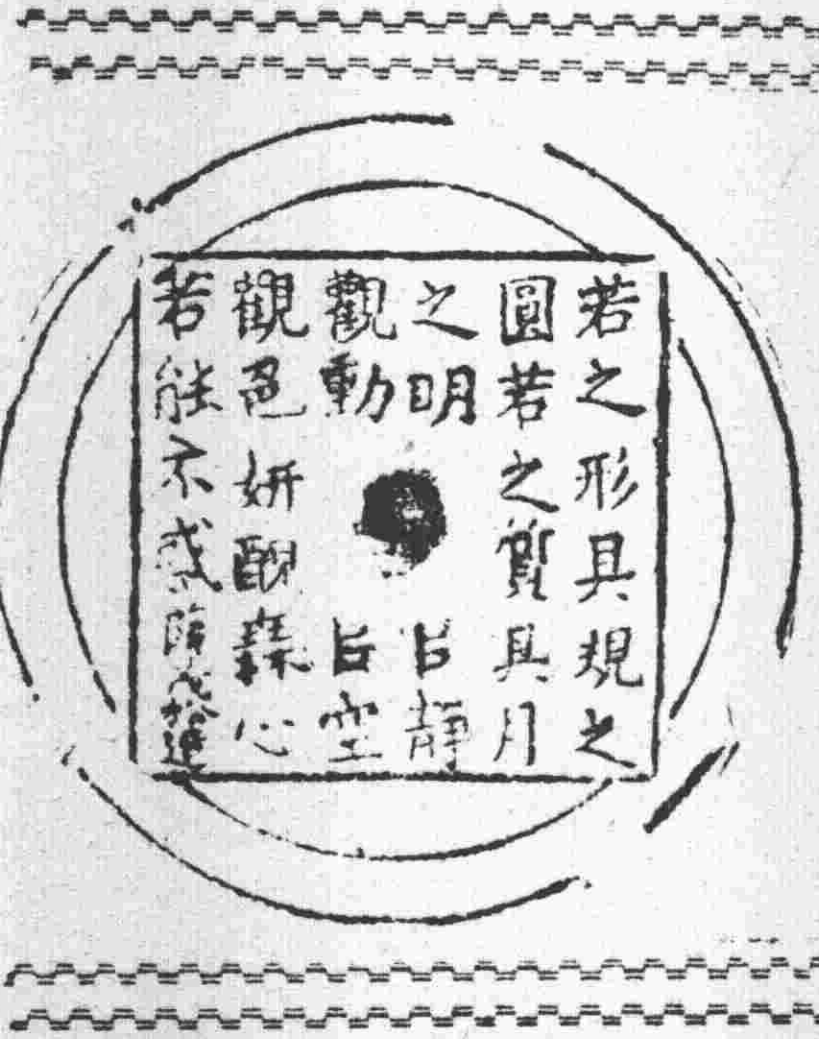 若之形具規之
圓若之質具月
之明㠯靜
觀動㠯空
觀色妍醜心
若能不惑